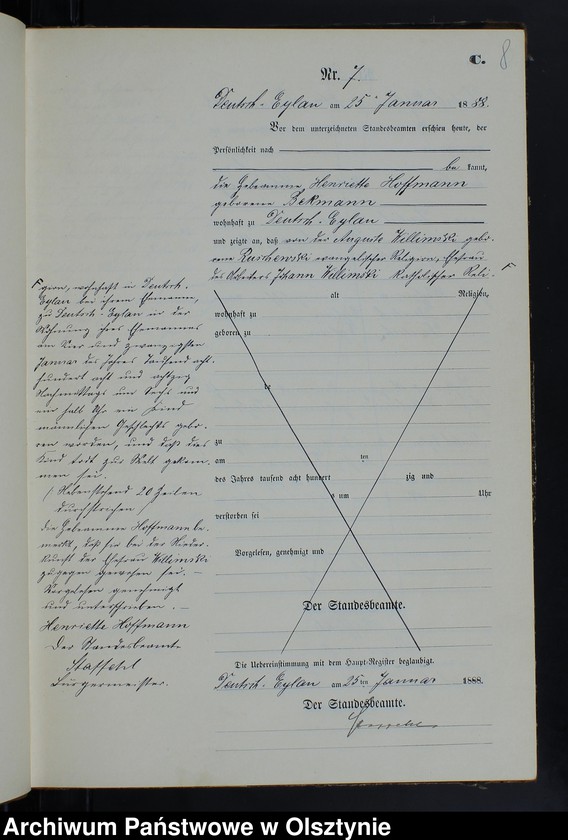 C. 8
Nr. 7.
Deutsch-Eylau am 25 Januar 1888.
Vor dem unterzeichneten Standesbeamten erschien heute, der
Persönlichkeit nach
be kannt,
die Hebeamme Henriette Hoffmann
geborene Bekmann
wohnhaft zu Deutsch-Eylau
und zeigte an, daß von der Auguste Willimski gebo-
rene evangelischer Religion, Ehefrau
des Arbeiters Johann Willimski katholischer Reli- F
alt Religion,
wohnhaft zu
geboren zu
te
zu
am ten
des Jahres tausend acht hundert zig und
um Uhr
verstorben sei
Vorgelesen, genehmigt und
Der Standesbeamte.
F gion, wohnhaft in Deutsch-
Eylau bei ihrem Ehemanne,
zu Deutsch-Eylau in der
Wohnung ihres Ehemannes
am vier und zwanzigsten
Januar des Jahres tausend acht-
hundert acht und achtzig
Nachmittags um sechs und
ein halb Uhr ein Kind
männlichen Geschlechts gebo-
ren worden, und daß dies
Kind todt zur Welt gekom-
men sei.
(Nebenstehend 20 Zeilen
durchstrichen)
die Hebeamme Hoffmann be-
merkt, daß sie bei der Nieder-
kunft der Ehefrau Willimski
zugegen gewesen sei. –
Vorgelesen genehmigt
und unterschrieben. –
Henriette Hoffmann
Der Standesbeamte
Staffehl
Bürgermeister.
Die Uebereinstimmung mit dem Haupt-Register beglaubigt.
Deutsch-Eylau am 25ten Januar 1888.
Der Standesbeamte.
Archiwum Państwowe w Olsztynie